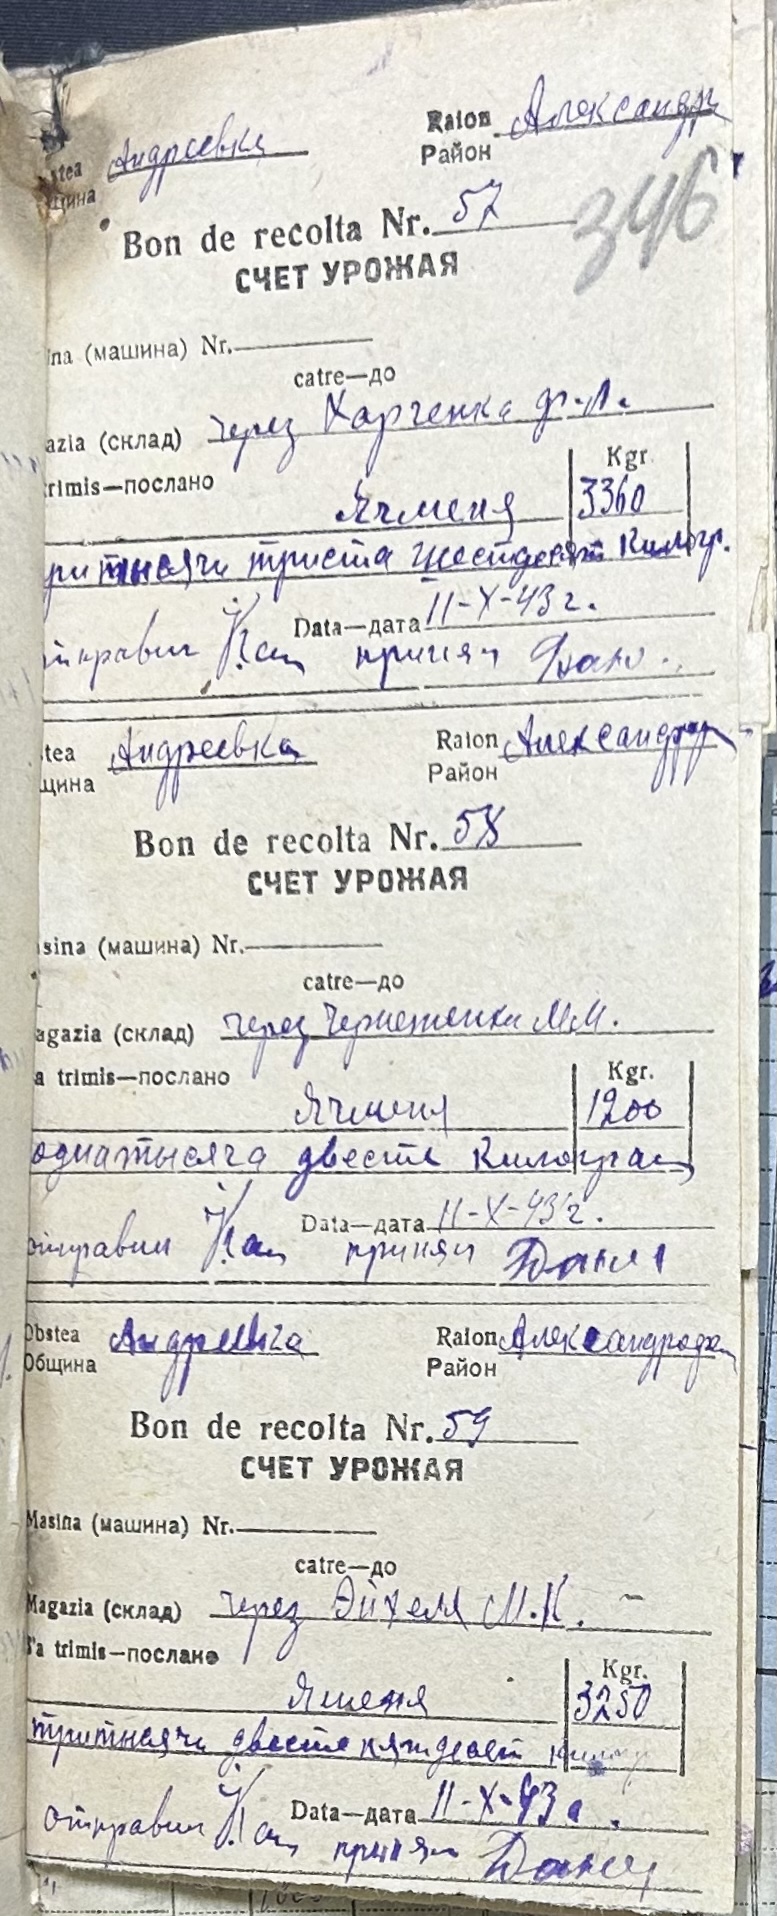 Андреевка Raion Александр
Район
Bon de recolta Nr. 57 346
СЧЕТ УРОЖАЯ
(машина) Nr.
catre—до
azia (склад) через Харченка
trimis—послано Kgr
Ячменя 3360
три тысячи триста шестдесят килогр.
Data—дата 11-X-43 г.
отправил Кац принял
tea Андреевка Raion Александр
щина Район
Bon de recolta Nr. 58
СЧЕТ УРОЖАЯ
sina (машина) Nr.
catre—до
agazia (склад) через М.М.
a trimis—послано Kgr.
Ячменя 1200
одна тысяча двести килограм
Data—дата 11-X-43 г.
отправил Кац принял
Obstea Raion
Община Район
Bon de recolta Nr. 59
СЧЕТ УРОЖАЯ
Masina (машина) Nr.
catre—до
Magazia (склад) через М.К.
S'a trimis—послано Kgr.
3250
три тысячи двести пятдесят
Data—дата 11-X-43
отправил Кац принял